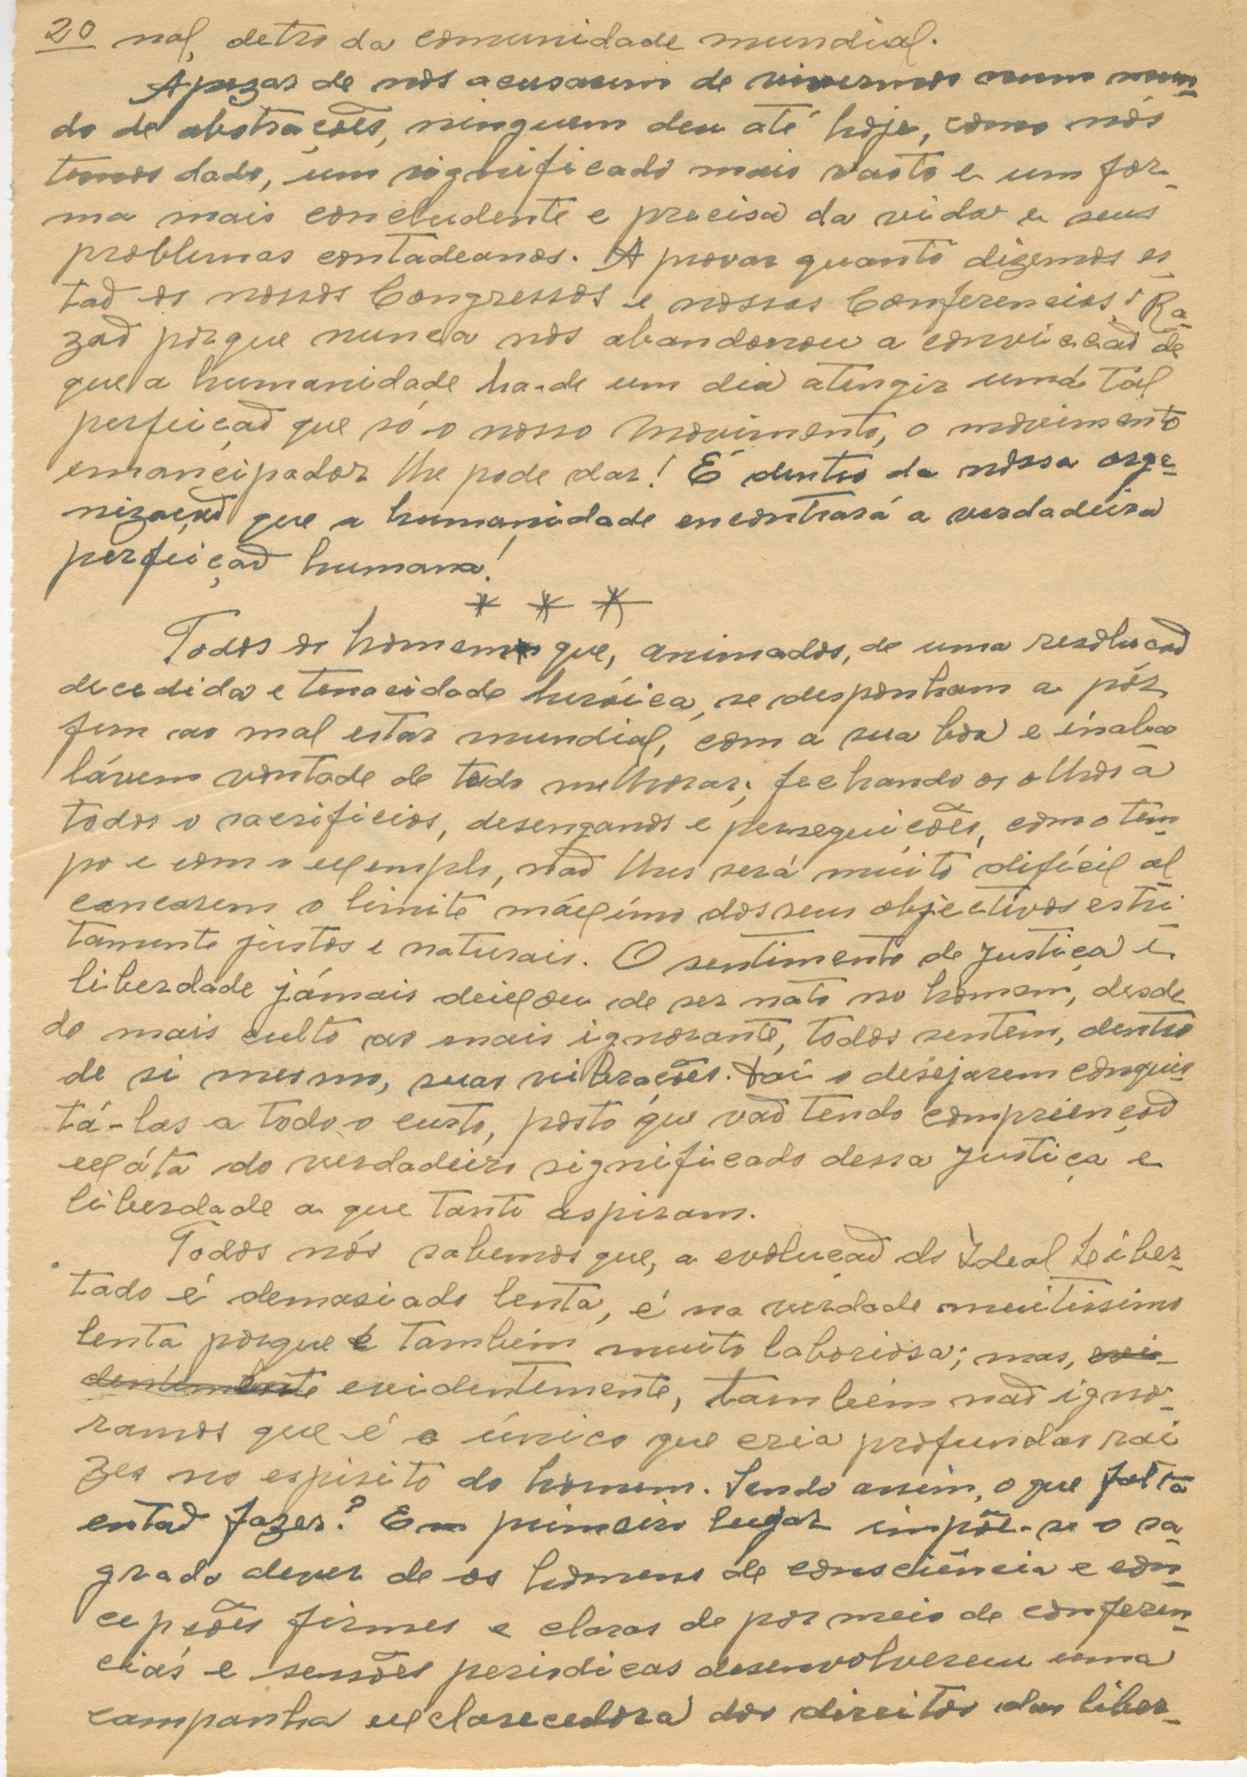 20 nal, detro da comunidade mundial.
Apezar de nos acusarem de vivermos num mun-
do de abstrações, ninguem deu até hoje, como nós
temos dado, um significado mais vasto e um for-
ma mais concludente e precisa da vida e seus
problemas contadeanos. A provar quanto dizemos es-
taõ os nossos Congressos e nossas Conferencias! Ra-
zaõ porque nunca nos abandonou a convicçaõ de
que a humanidade ha-de um dia atingir uma tal
perfeiçaõ que só o nosso Movimento, o movimento
emancipador lhe pode dar! É dentro da nossa orga-
nizaçaõ que a humanidade encontrará a verdadeira
perfeiçaõ humana!
* * *
Todos os homens que, animados, de uma resoluçaõ
decedida e tenacidade heróica, se desponham a pôr
fim ao mal estar mundial, com a sua boa e inaba-
lávem vontade de tudo melhorar; fechando os olhos a
todos o sacrificios, desenganos e perseguições, com o tem-
po e com o exemplo, naõ lhes será muito difícil al-
cancarem o limite máximo dos seus objectivos estri-
tamente justos e naturais. O sentimento de justiça e
liberdade jámais deixou de ser nato no homem, desde
do mais culto ao mais ignorante, todos sentem, dentro
de si mesmo, suas vibrações. Daí o desejarem conquis-
tá-las a todo o custo, posto que vaõ tendo compriençaõ
exáta do verdadeiro significado dessa justiça e
liberdade a que tanto aspiram.
Todos nós sabemos que, a evoluçaõ do Ideal Liber-
tado é demasiado lenta, é na verdade muitissimo
lenta porque é também muito laboriosa; mas, evi-
dentemente evidentemente, também naõ igno-
ramos que é o único que cria profundas rai-
zes no espirito do homem. Sendo assim, o que falta
entaõ fazer? Em primeiro lugar impõe-se o sa-
grado dever de os homens de consciência e con-
cepções firmes e claras de por meio de conferên-
ciás e sensões periodicas desenvolverem uma
campanha exclarecedora dos direitos das liber-